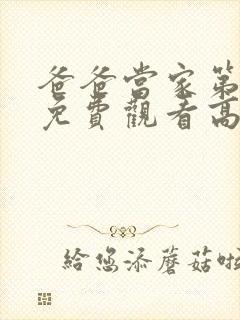 爸爸當家第
免費觀看高
給您添蘑菇啦